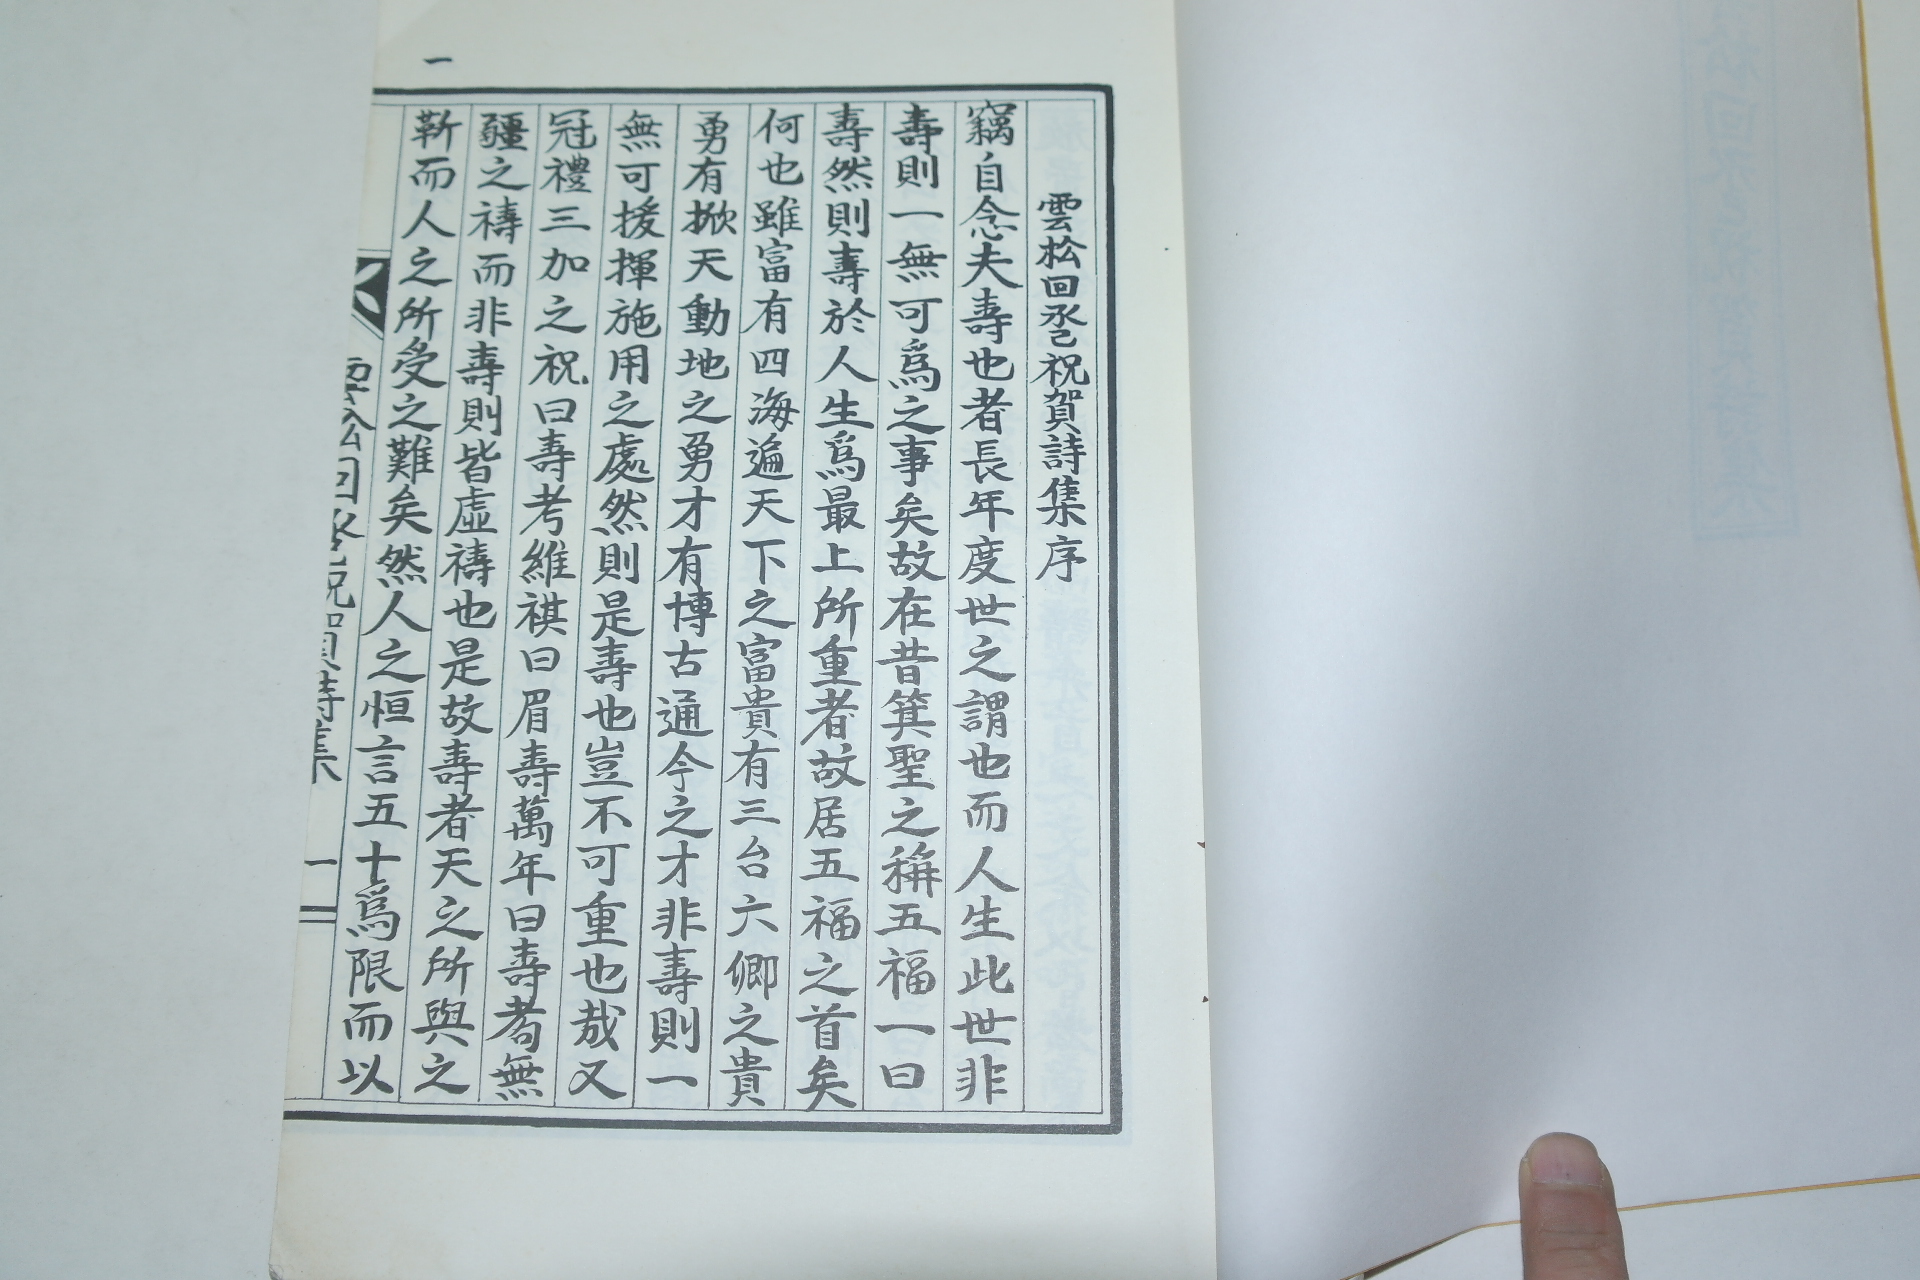 一
雲松回巹祝賀詩集序
竊自念夫壽也者長年度世之謂也而人生此世非
壽則一無可爲之事矣故在昔箕聖之稱五福一曰
壽然則壽於人生爲最上所重者故居五福之首矣
何也雖富有四海遍天下之富貴有三台六卿之貴
勇有掀天動地之勇才有博古通今之才非壽則一
無可援揮施用之處然則是壽也豈不可重也哉又
冠禮三加之祝曰壽考維祺曰眉壽萬年曰壽耈無
疆之禱而非壽則皆虛禱也是故壽者天之所與之
靳而人之所受之難矣然人之恒言五十爲限而以
雲松回巹祝賀詩集
一